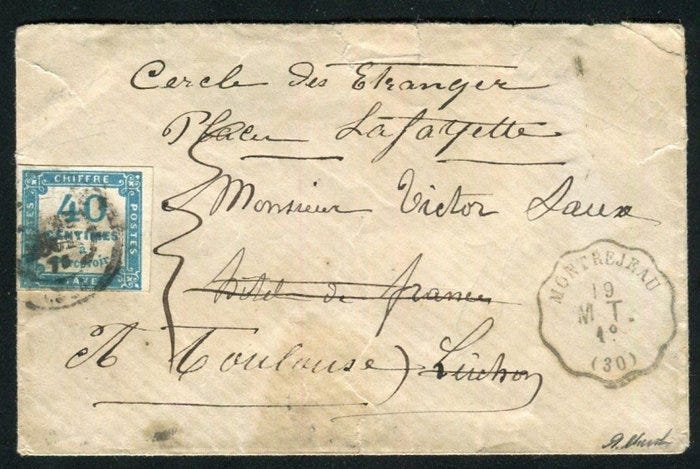 Cercle des Etranger
Place Lafayette
Monsieur Victor Saux
Hotel de france
A Toulouse) Luchon
CHIFFRE
POSTES
TAXE
40
CENTIMES
à
percevoir
MONTREJEAU
19
M T.
1º
(30)